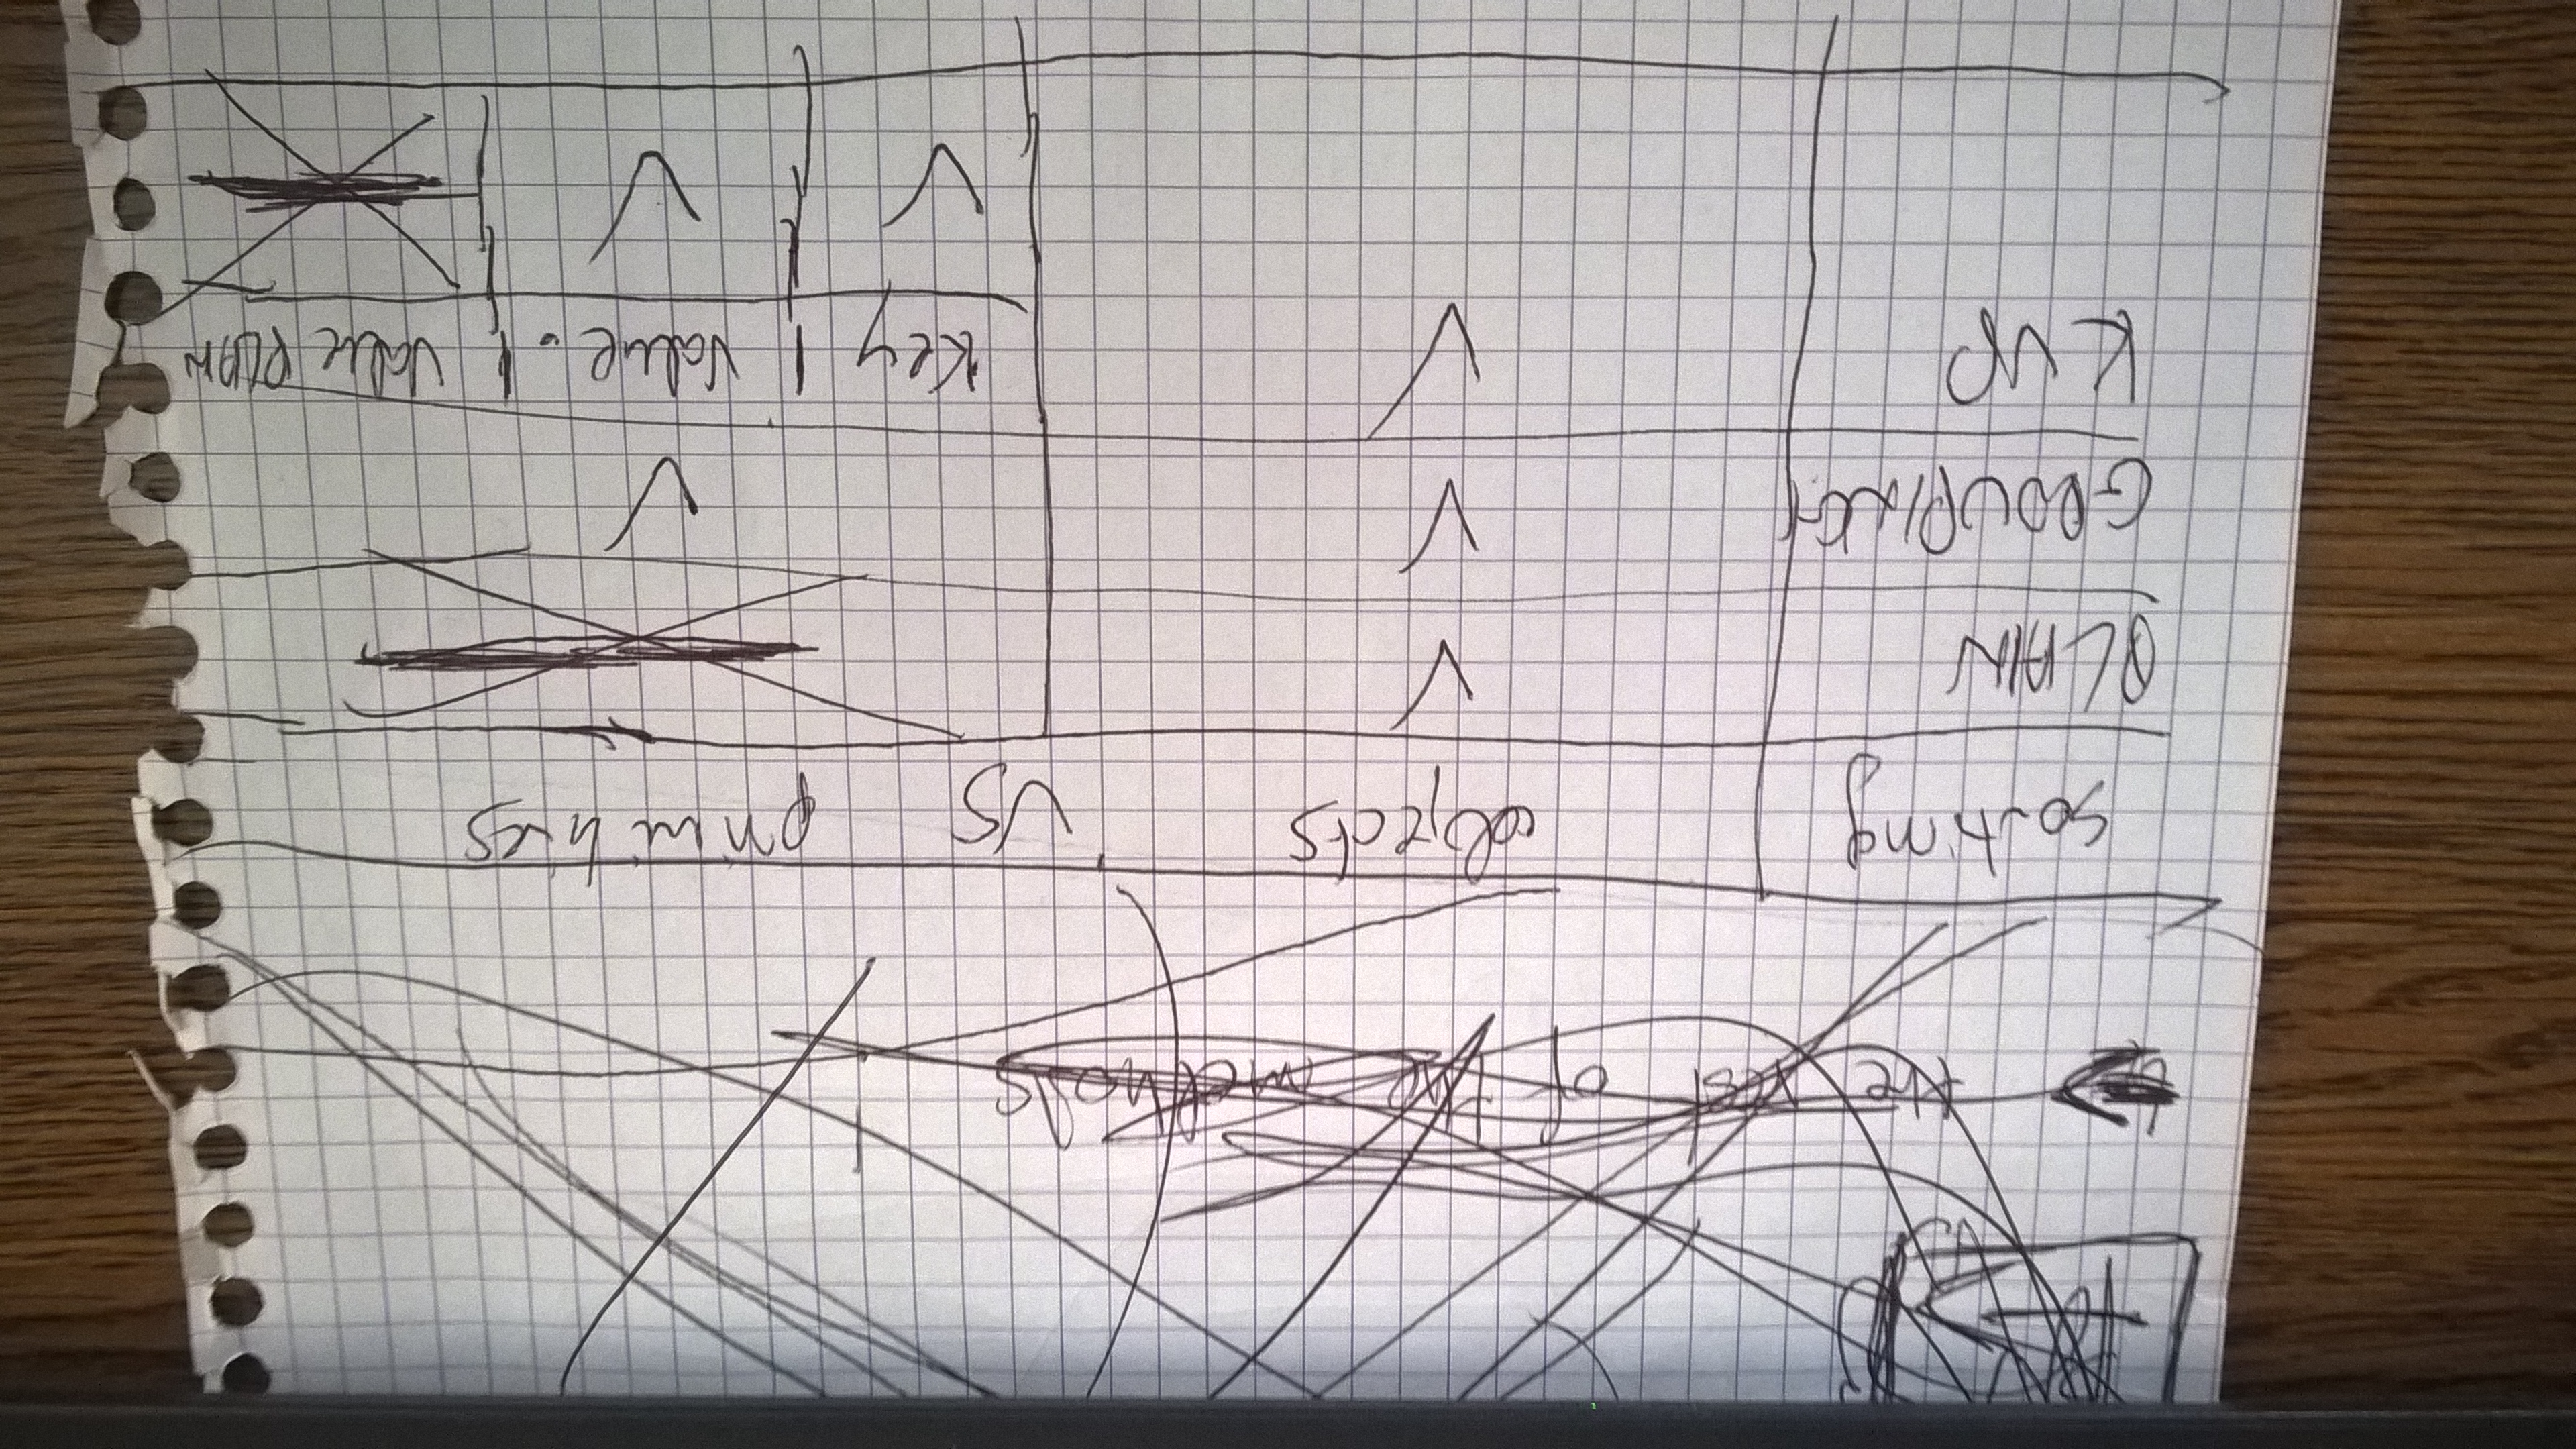 the rest of the methods
sorting objects vs primitives
PLAIN ✓
GROUPING ✓ ✓
KVP ✓ Key | Value. | Value PLAIN
✓ ✓